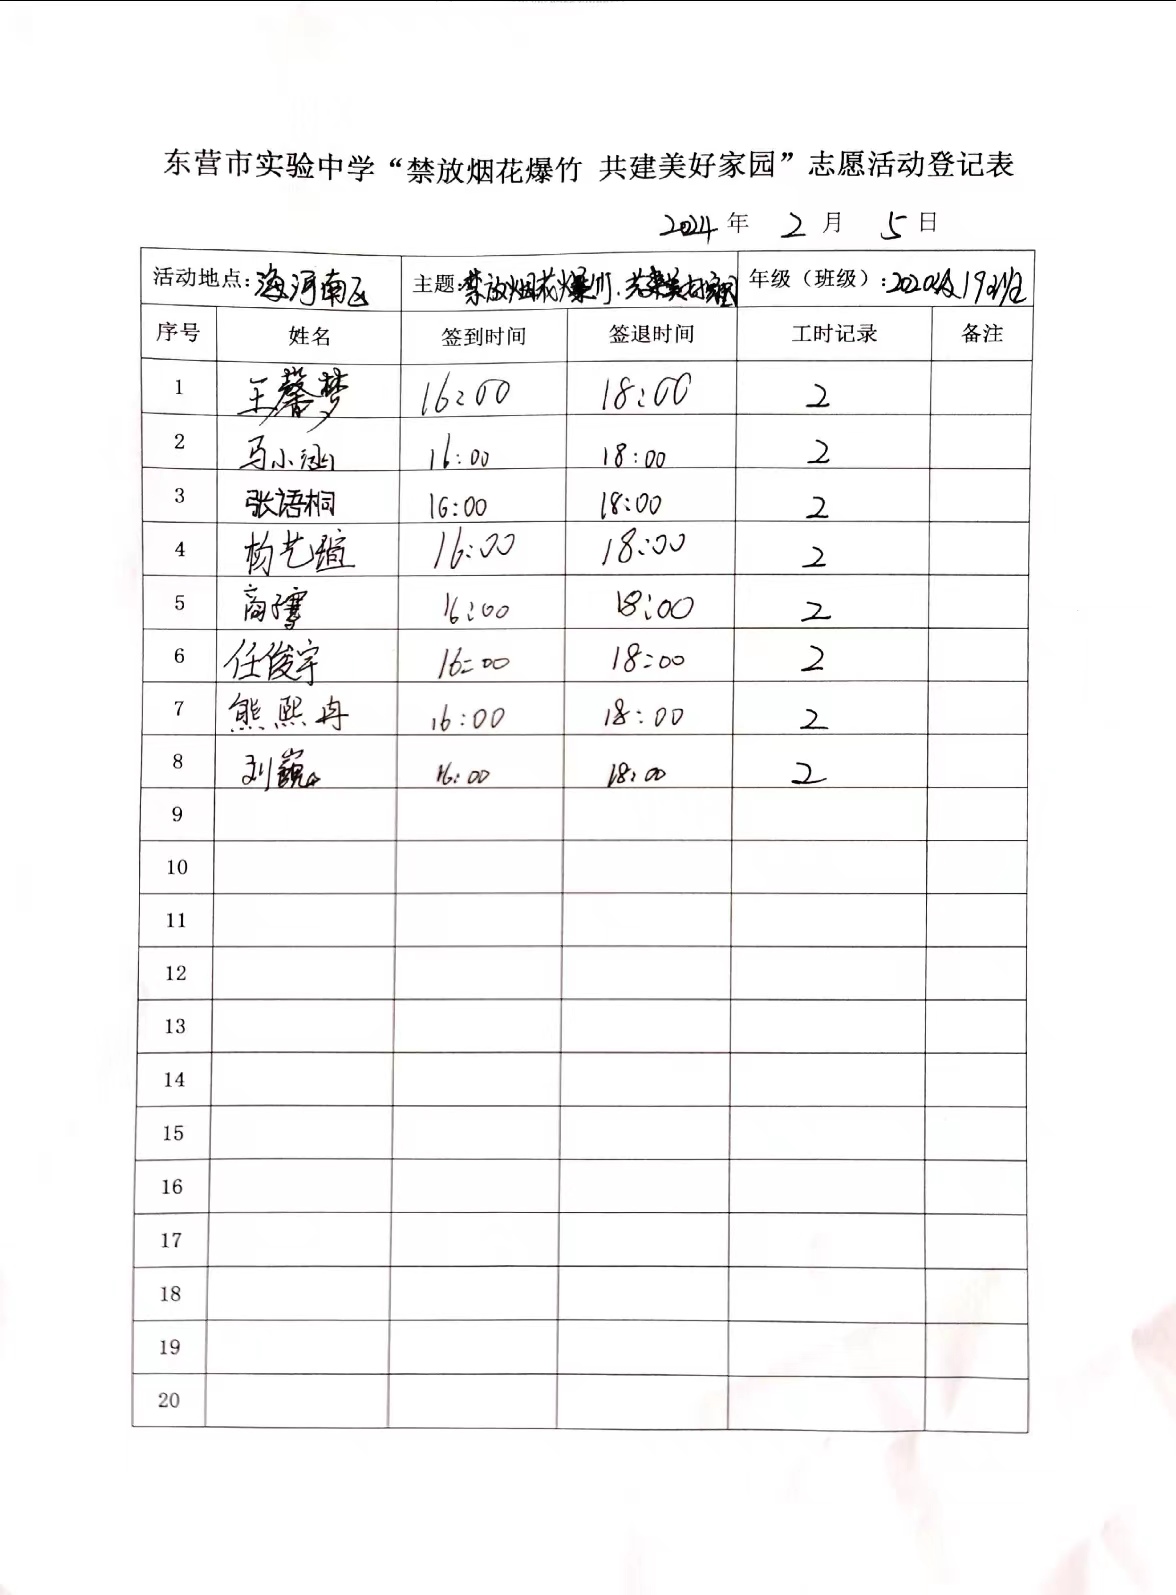 东营市实验中学“禁放烟花爆竹 共建美好家园”志愿活动登记表
2024 年 2 月 5 日
活动地点：海河南区 主题：禁放烟花爆竹.共建美好家园 年级（班级）：2020级19班
序号 姓名 签到时间 签退时间 工时记录 备注
1 王馨梦 16:00 18:00 2
2 马小涵 16:00 18:00 2
3 张语桐 16:00 18:00 2
4 杨艺瑄 16:00 18:00 2
5 商子雯 16:00 18:00 2
6 任俊宇 16:00 18:00 2
7 熊熙冉 16:00 18:00 2
8 刘 16:00 18:00 2
9
10
11
12
13
14
15
16
17
18
19
20